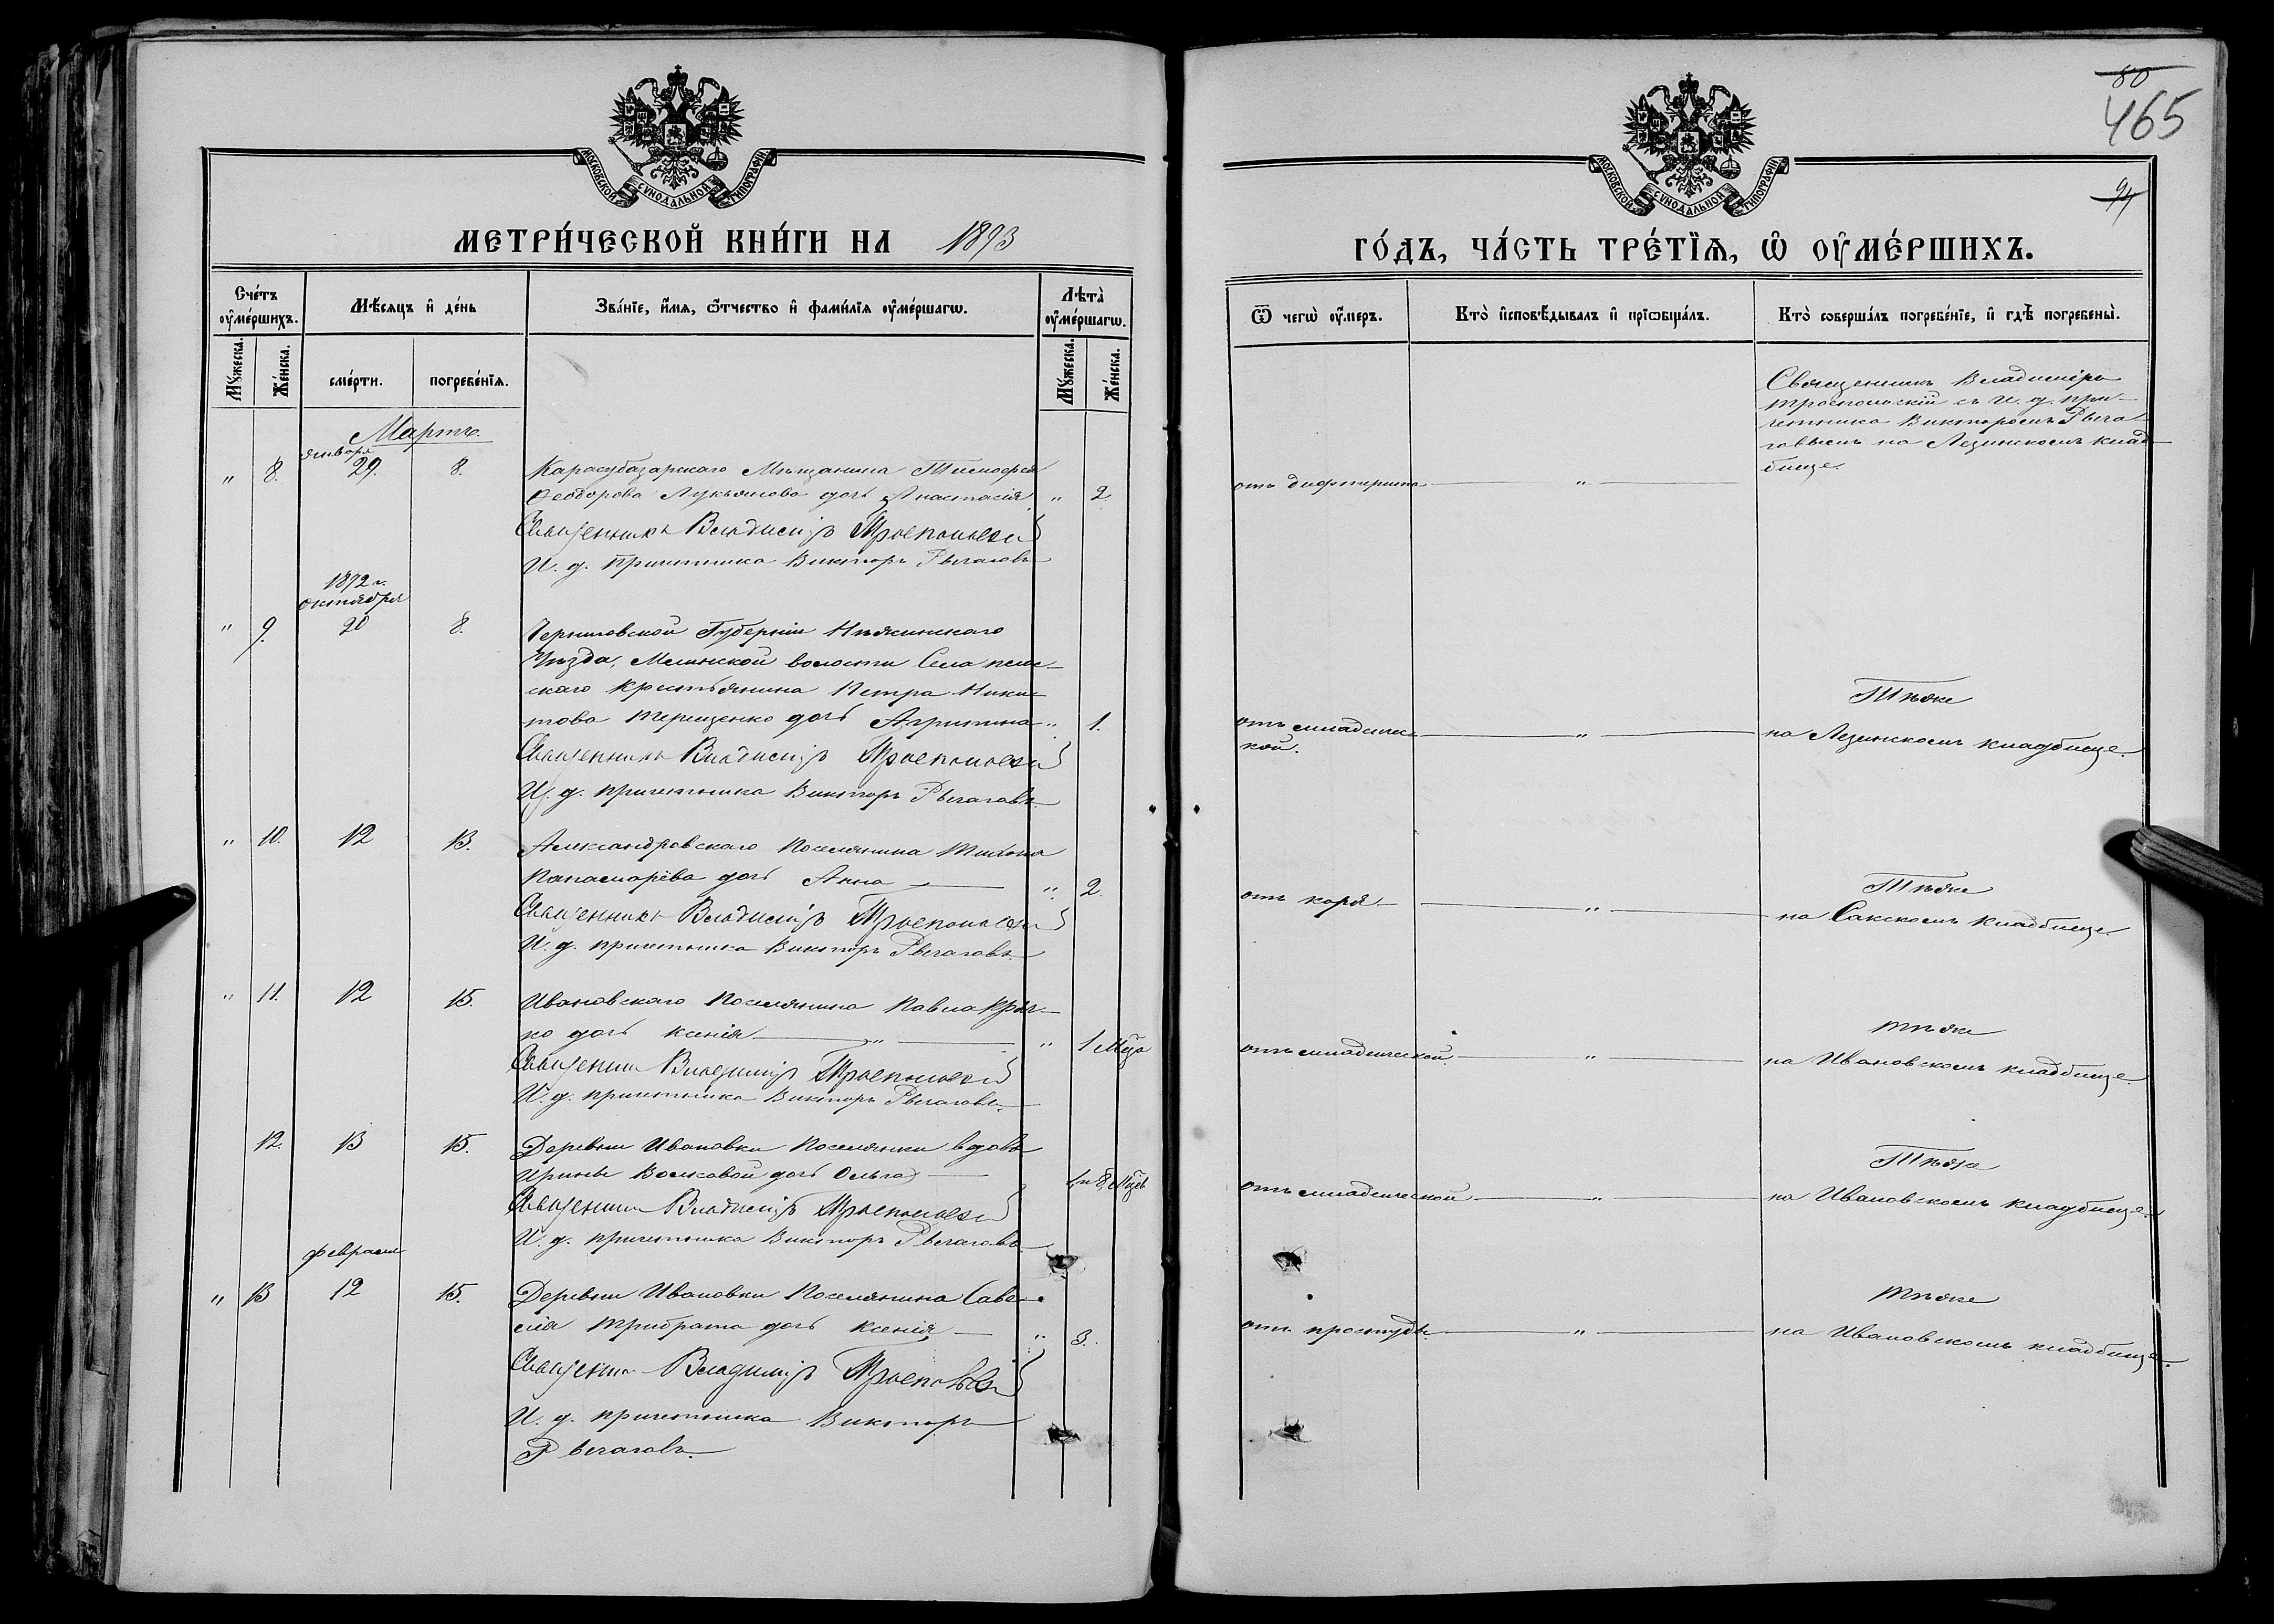 80
465
МОСКОВСКОЙ СУНОДАЛЬНОЙ ТИПОГРАФІИ
МОСКОВСКОЙ СУНОДАЛЬНОЙ ТИПОГРАФІИ
МЕТРИ́ЧЕСКОЙ КНИ́ГИ НА 1893
ГО́ДЪ, ЧА́СТЬ ТРЕ́ТЇѦ, Ѡ҆ ОУ҆МЕ́РШИХЪ.
Сче́тъ оу҆ме́ршихъ.
Мѣ́сяцъ и҆ де́нь
Зва́нїе, и҆́мя, ѻ҆́тчество и҆ фами́лїя оу҆ме́ршагѡ.
Лѣта̀ оу҆ме́ршагѡ.
Мꙋ́жеска.
Же́нска.
сме́рти.
погребе́нїя.
Мꙋ́жеска.
Же́нска.
Ѿ чегѡ̀ оу҆́меръ.
Кто̀ и҆сповѣ́дывалъ и҆ прїѡбща́лъ.
Кто̀ соверша́лъ погребе́нїе, и҆ гдѣ̀ погребены̀.
Мартъ.
января
" 8. 29. 8. Карасубазарскаго Мѣщанина Тимофея
Ѳеодорова Лукьянова дочь Анастасія " 2.
Священникъ Владиміръ Троепольскій
И. д. причетника Викторъ Рвачовъ
отъ дифтерита "
Священникъ Владиміръ
Троепольскій съ и. д. при-
четника Викторомъ Рвачо-
вымъ на Лезинскомъ клад-
бище.
1892 г.
октября
" 9. 20 8. Черниговской Губерніи Нѣжинскаго
Уѣзда, волости Села
скаго крестьянина Петра Ники-
това Терещенко дочь Агрипина " 1.
Священникъ Владиміръ Троепольскій
И. д. причетника Викторъ Рвачовъ
отъ младенчес-
кой. "
Тѣже
на Лезинскомъ кладбище.
" 10. 12 13. Александровскаго Поселянина Тихона
Панамарёва дочь Анна " 2.
Священникъ Владиміръ Троепольскій
И. д. причетника Викторъ Рвачовъ
отъ коря "
Тѣже
на Сакскомъ кладбище.
" 11. 12 15. Ивановскаго Поселянина Павла
ко дочь Ксенія " " 1 Мѣца
Священникъ Владиміръ Троепольскій
И. д. причетника Викторъ Рвачовъ
отъ младенческой "
тѣже
на Ивановскомъ кладбище
12. 13 15. Деревни Ивановки Поселянки вдовы
Ирины Волковой дочь Ольга 1 и 8 Мѣцевъ
Священникъ Владиміръ Троепольскій
И. д. причетника Викторъ Рвачовъ
отъ младенческой "
Тѣже
на Ивановскомъ кладбище
февраля
" 13 12 15. Деревни Ивановки Поселянина Саве-
лія Трибрата дочь Ксенія " 3.
Священникъ Владиміръ Троепольскій
И. д. причетника Викторъ
Рвачовъ.
отъ простуды. "
тѣже
на Ивановскомъ кладбище.